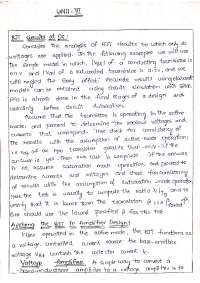 UNIT - VI
BJT Circuits at DC :
Consider the analysis of BJT circuits to which only dc
voltages are applied. In the following examples we will use
the simple model in which, |VBE| of a conducting transistor is
0.7 V and |VCE| of a saturated transistor is 0.2V, and we
will neglect the Early effect. Accurate results using elaborate
models can be obtained using circuit simulation with SPICE.
This is almost done in the final stages of a design and
certainly before circuit fabrication.
Assume that the transistor is operating in the active
mode, and proceed to determine the various voltages and
currents that correspond. Then check for consistency of
the results with the assumption of active-mode operation;
is VCB of an npn transistor greater than -0.4V. If the
answer is yes, then our task is complete. If the answer
is no, assume saturation mode operation, and proceed to
determine currents and voltages and check for consistency
of results with the assumption of saturation mode operation
Here the task is usually to compute the ratio IC/IB and to
verify that it is lower than the transistor β; i.e.,
One should use the lowest specified β for this test.
Applying The BJT In Amplifier Design:
When operated in the active mode, the BJT functions as
a voltage controlled current source: the base-emitter
voltage VBE controls the collector current iC.
Voltage Amplifier: A simple way to convert a
transconductance amplifier to a voltage amplifier is to